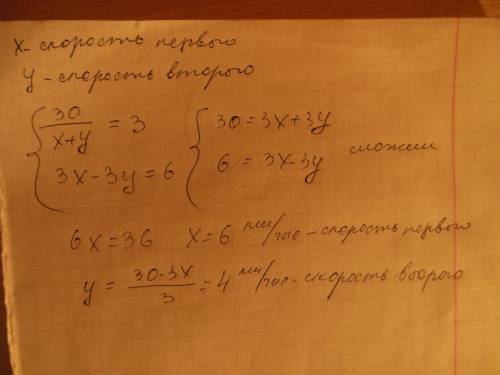 x - скорость первого
y - скорость второго
{ 30/(x+y) = 3 { 30 = 3x+3y
{ 3x-3y = 6 { 6 = 3x-3y сложим
6x = 36 x = 6 км/час - скорость первого
y = (30-3x)/3 = 4 км/час - скорость второго